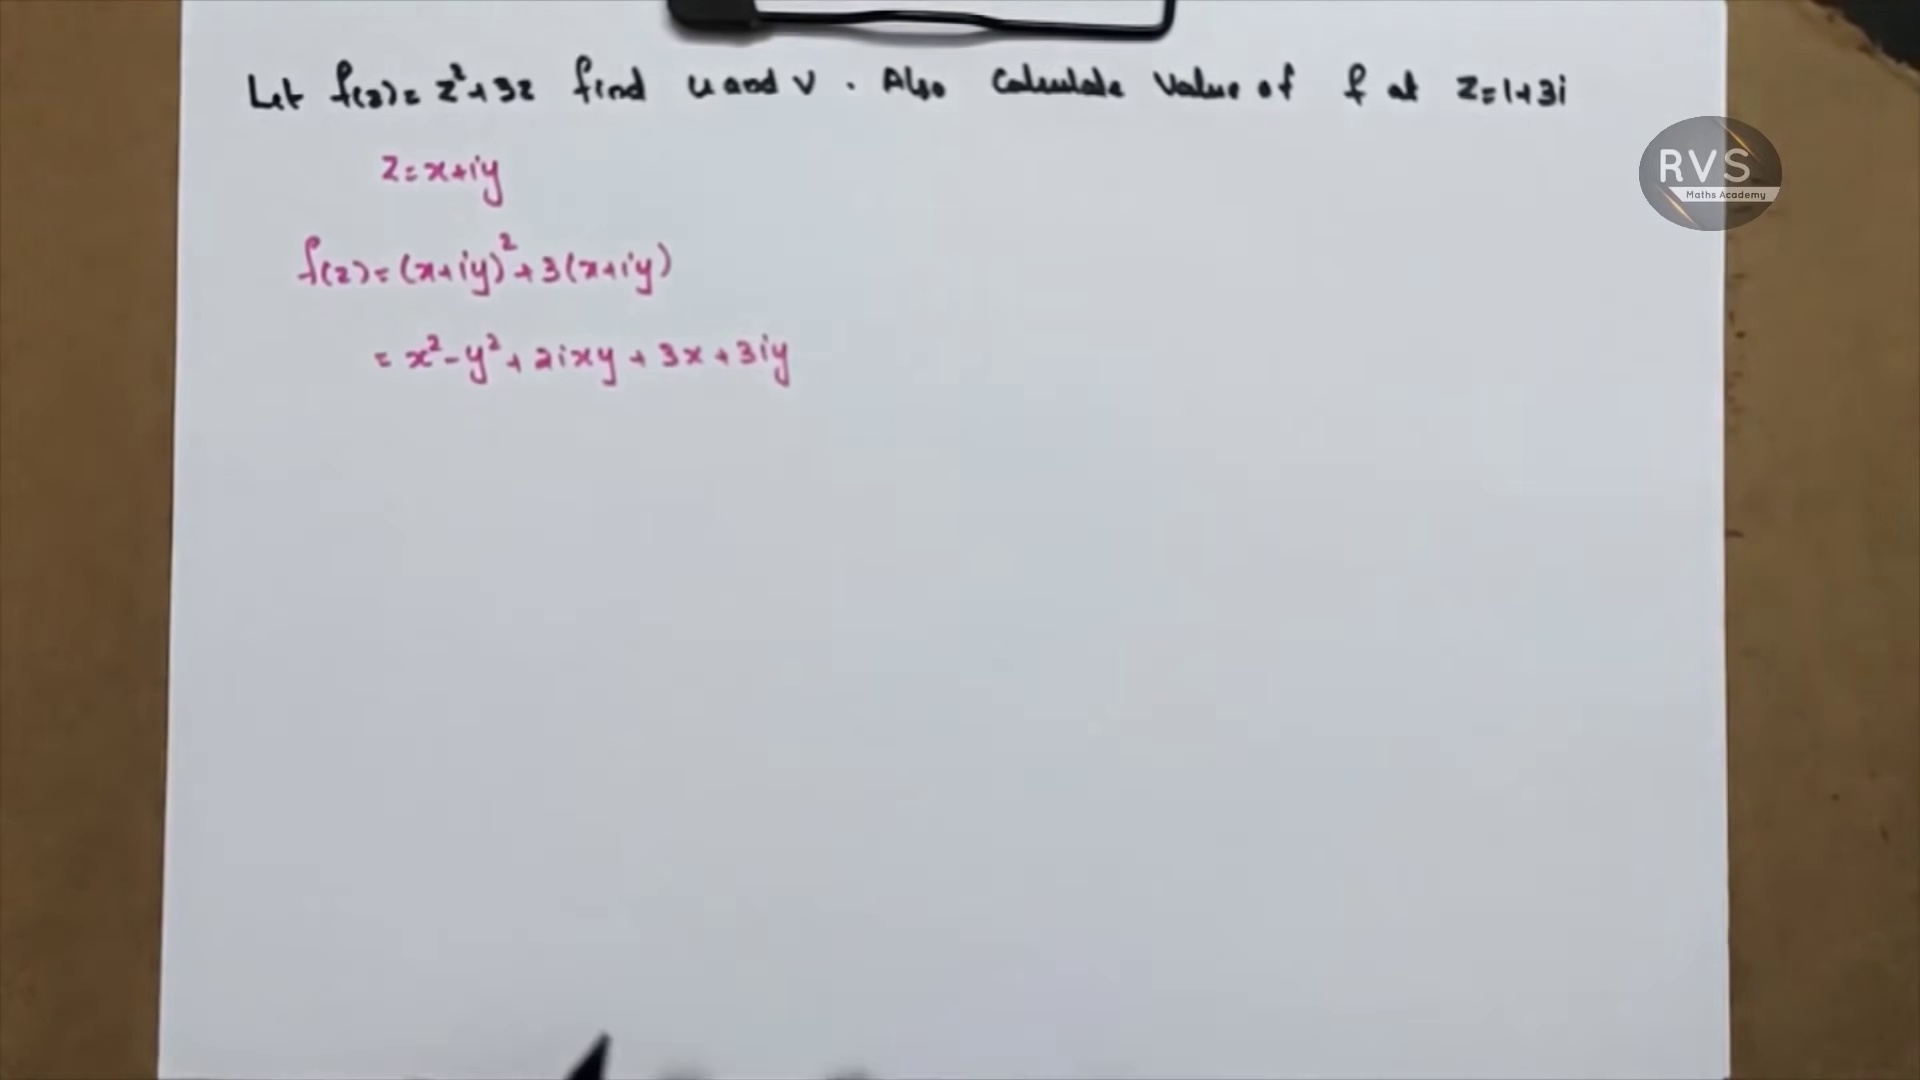 Let f(z) = z²+3z find u and v . Also Calculate Value of f at z=1+3i
RVS
Maths Academy
z=x+iy
f(z)=(x+iy)²+3(x+iy)
= x²-y²+2ixy+3x+3iy